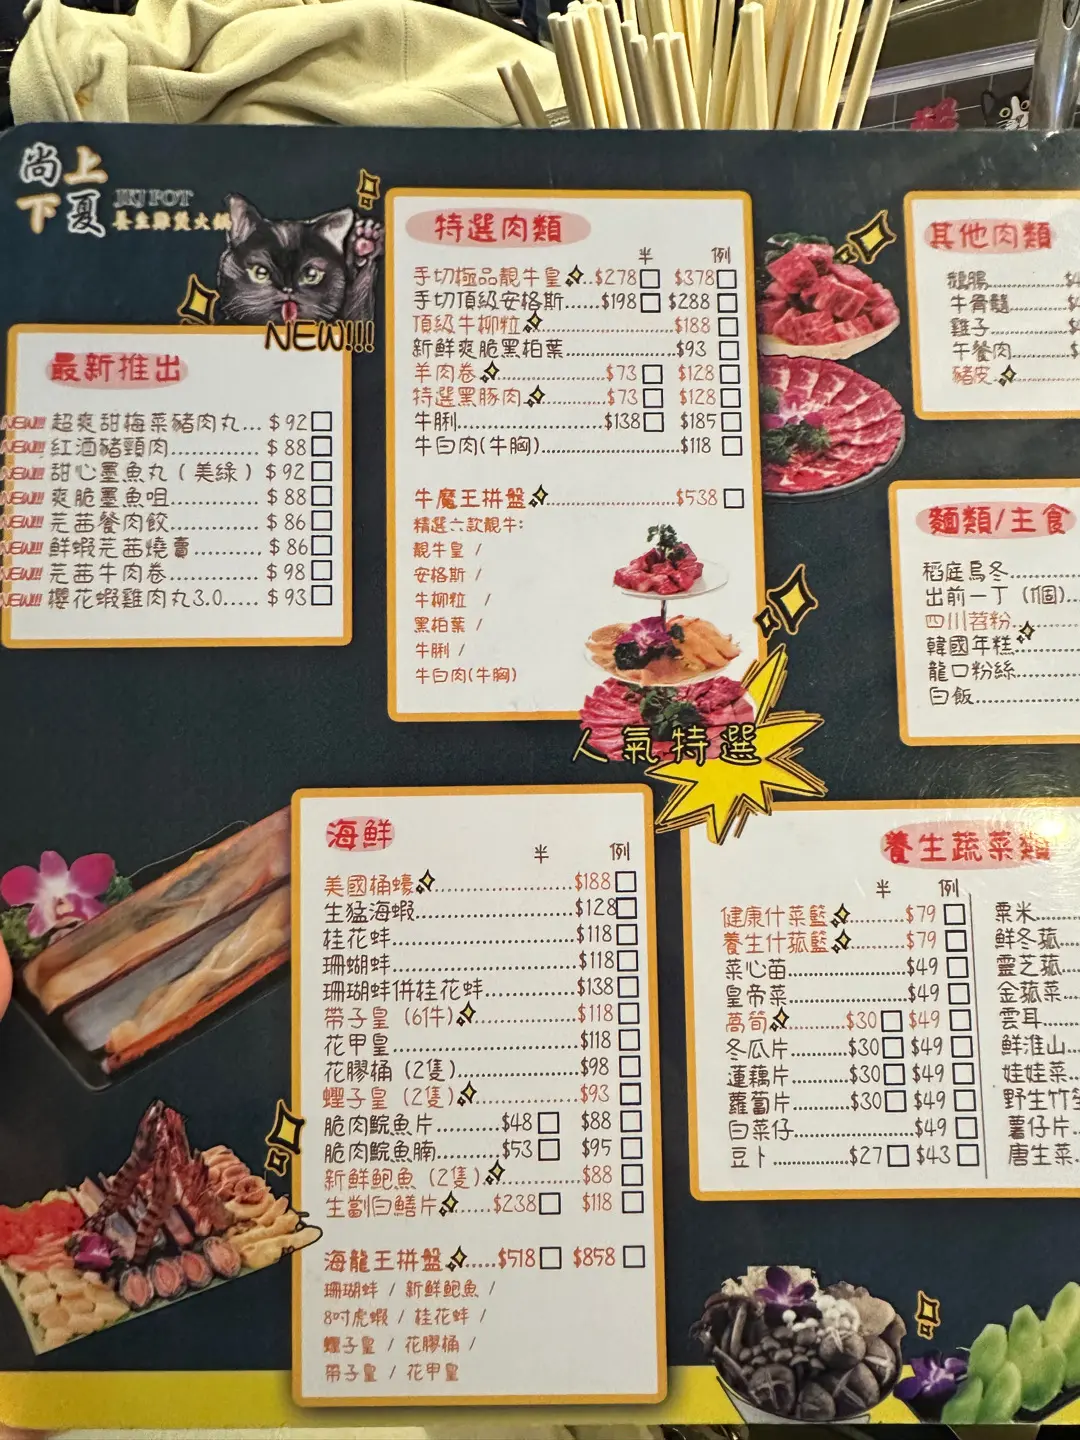 尚上
下夏
JKJ POT
養生雞煲火鍋
NEW!!!
最新推出
NEW!!! 超爽甜梅菜豬肉丸... $92
NEW!!! 紅酒豬頸肉............ $88
NEW!!! 甜心墨魚丸（美綠） $92
NEW!!! 爽脆墨魚咀............ $88
NEW!!! 芫茜餐肉餃............ $86
NEW!!! 鮮蝦芫茜燒賣......... $86
NEW!!! 芫茜牛肉卷............ $98
NEW!!! 櫻花蝦雞肉丸3.0..... $93
特選肉類
半 例
手切極品靚牛皇..$278 $378
手切頂級安格斯......$198 $288
頂級牛柳粒....................$188
新鮮爽脆黑柏葉....................$93
羊肉卷................$73 $128
特選黑豚肉..........$73 $128
牛脷......................$138 $185
牛白肉(牛胸)....................$118
牛魔王拼盤....................$538
精選六款靚牛:
靚牛皇 /
安格斯 /
牛柳粒 /
黑柏葉 /
牛脷 /
牛白肉(牛胸)
人氣特選
其他肉類
鵝腸
牛骨髓
雞子
午餐肉
豬皮
麵類/主食
稻庭烏冬
出前一丁 (1個)
四川苕粉
韓國年糕
龍口粉絲
白飯
海鮮
半 例
美國桶蠔....................$188
生猛海蝦....................$128
桂花蚌....................$118
珊瑚蚌....................$118
珊瑚蚌併桂花蚌............$138
帶子皇 (6件)................$118
花甲皇....................$118
花膠桶 (2隻)................$98
蟶子皇 (2隻)................$93
脆肉鯇魚片..........$48 $88
脆肉鯇魚腩..........$53 $95
新鮮鮑魚 (2隻)............$88
生劏白鱔片......$238 $118
海龍王拼盤.....$518 $858
珊瑚蚌 / 新鮮鮑魚 /
8吋虎蝦 / 桂花蚌 /
蟶子皇 / 花膠桶 /
帶子皇 / 花甲皇
養生蔬菜類
半 例
健康什菜籃..........$79
養生什菰籃..........$79
菜心苗....................$49
皇帝菜....................$49
萵筍..........$30 $49
冬瓜片..........$30 $49
蓮藕片..........$30 $49
蘿蔔片..........$30 $49
白菜仔....................$49
豆卜..............$27 $43
粟米
鮮冬菰
靈芝菰
金菰菜
雲耳
鮮淮山
娃娃菜
野生竹笙
薯仔片
唐生菜